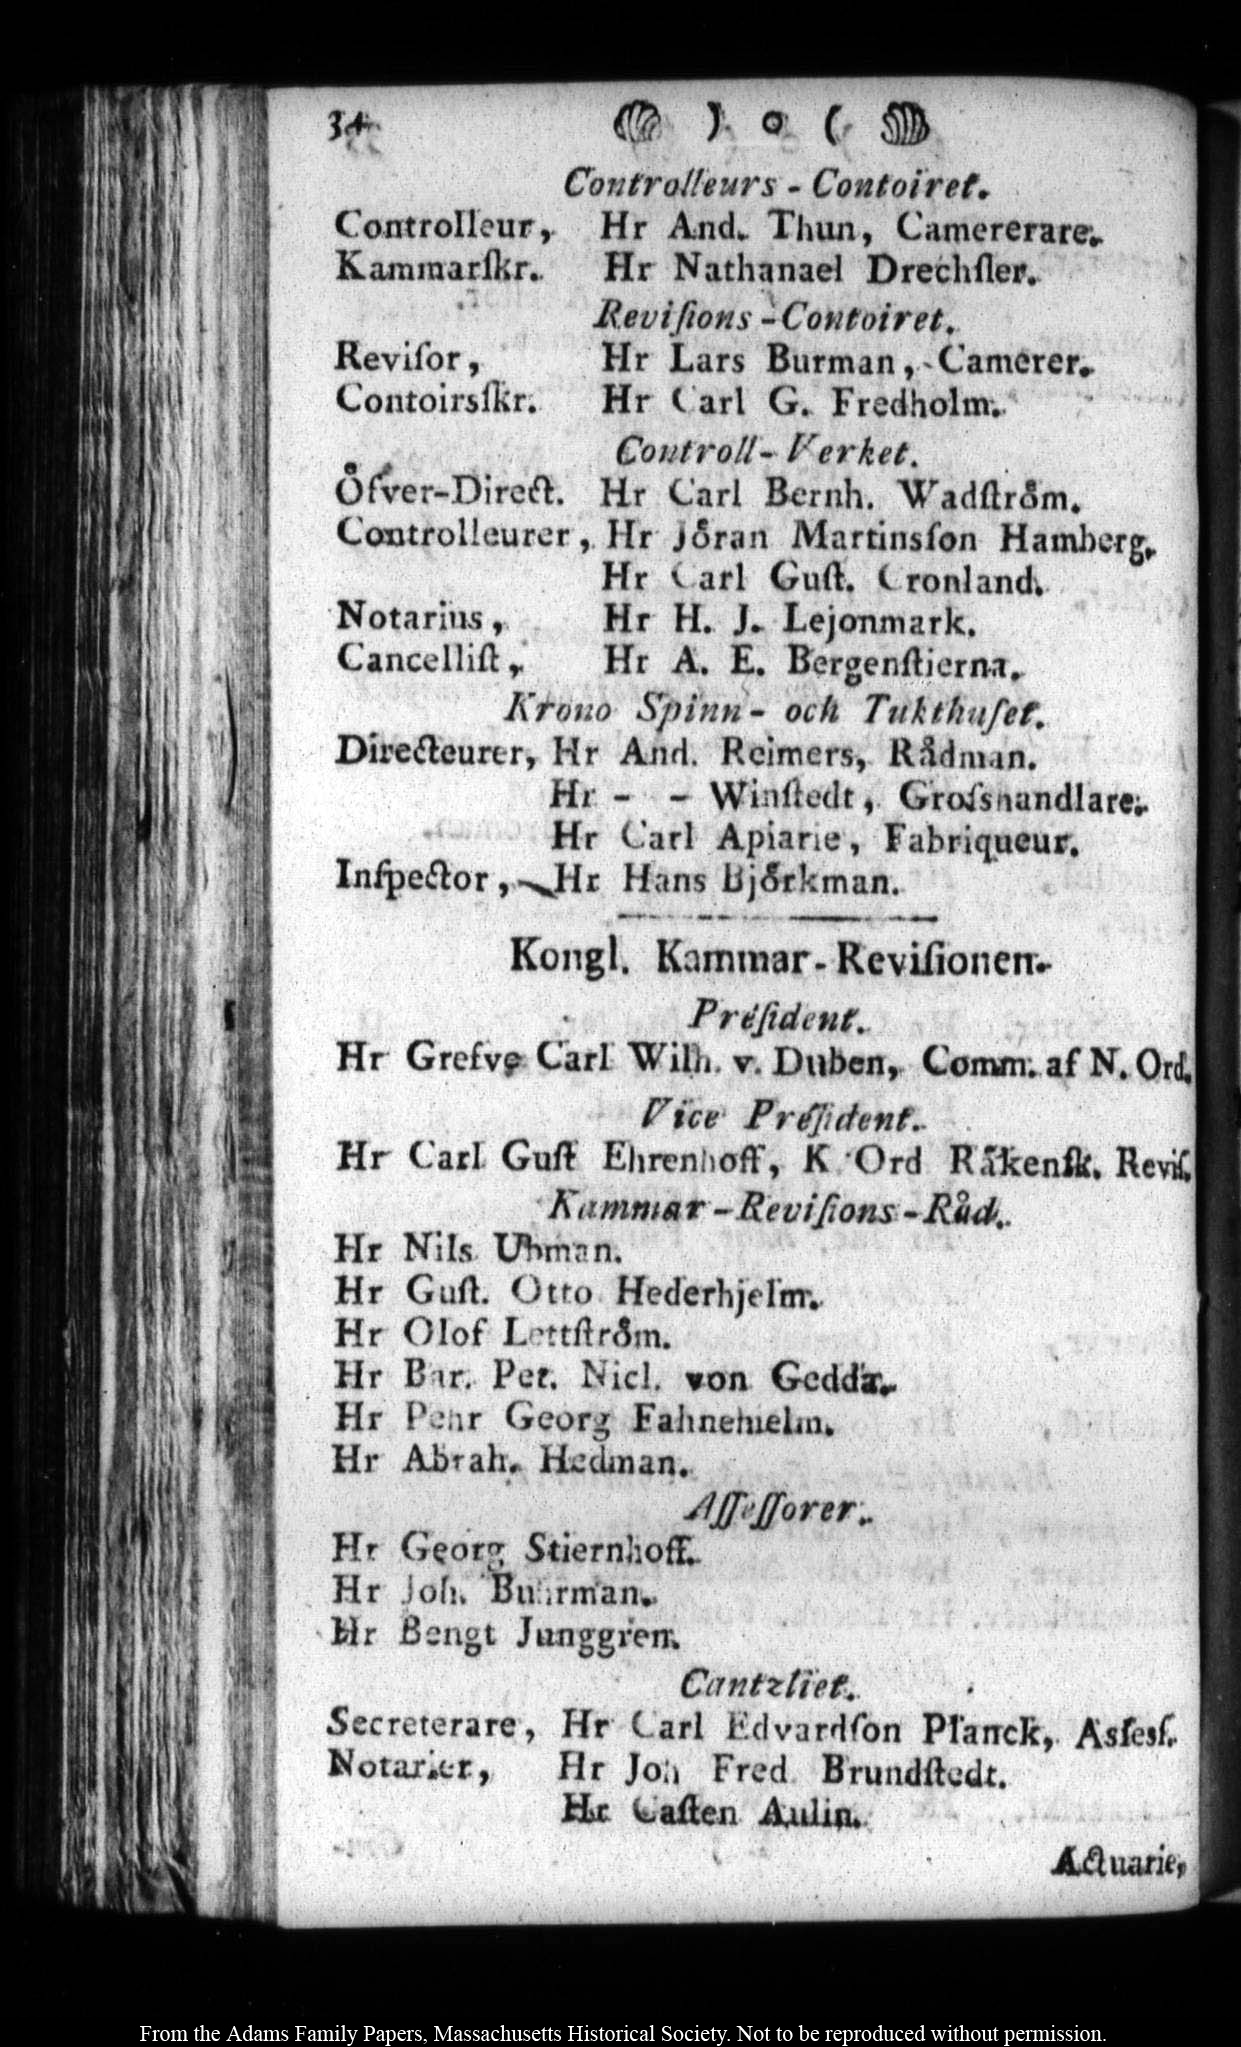 34 ) o (
Controlleurs - Contoiret.
Controlleur, Hr And. Thun, Camererare.
Kammarſkr. Hr Nathanael Drechſler.
Reviſions - Contoiret.
Reviſor, Hr Lars Burman, Camerer.
Contoirsſkr. Hr Carl G. Fredholm.
Controll - Verket.
Öfver-Direct. Hr Carl Bernh. Wadſtröm.
Controlleurer, Hr Jöran Martinsſon Hamberg.
Hr Carl Guſt. Cronland.
Notarius, Hr H. J. Lejonmark.
Cancelliſt, Hr A. E. Bergenſtierna.
Krono Spinn- och Tukthuſet.
Directeurer, Hr And. Reimers, Rådman.
Hr - - Winſtedt, Groſshandlare.
Hr Carl Apiarie, Fabriqueur.
Inſpector, Hr Hans Björkman.
Kongl. Kammar-Reviſionen.
Préſident.
Hr Grefve Carl Wilh. v. Duben, Comm. af N. Ord.
Vice Préſident.
Hr Carl Guſt Ehrenhoff, K Ord Räkenſk. Reviſ.
Kammar-Reviſions-Råd.
Hr Nils Uhman.
Hr Guſt. Otto Hederhjelm.
Hr Olof Lettſtröm.
Hr Bar. Pet. Nicl. von Gedda.
Hr Pehr Georg Fahnehielm.
Hr Abrah. Hedman.
Aſſeſſorer.
Hr Georg Stiernhoff.
Hr Joh. Buhrman.
Hr Bengt Junggren.
Cantzliet.
Secreterare, Hr Carl Edvardſon Planck, Asſesſ.
Notarier, Hr Joh Fred Brundſtedt.
Hr Caſten Aulin.
Actuarie,
From the Adams Family Papers, Massachusetts Historical Society. Not to be reproduced without permission.